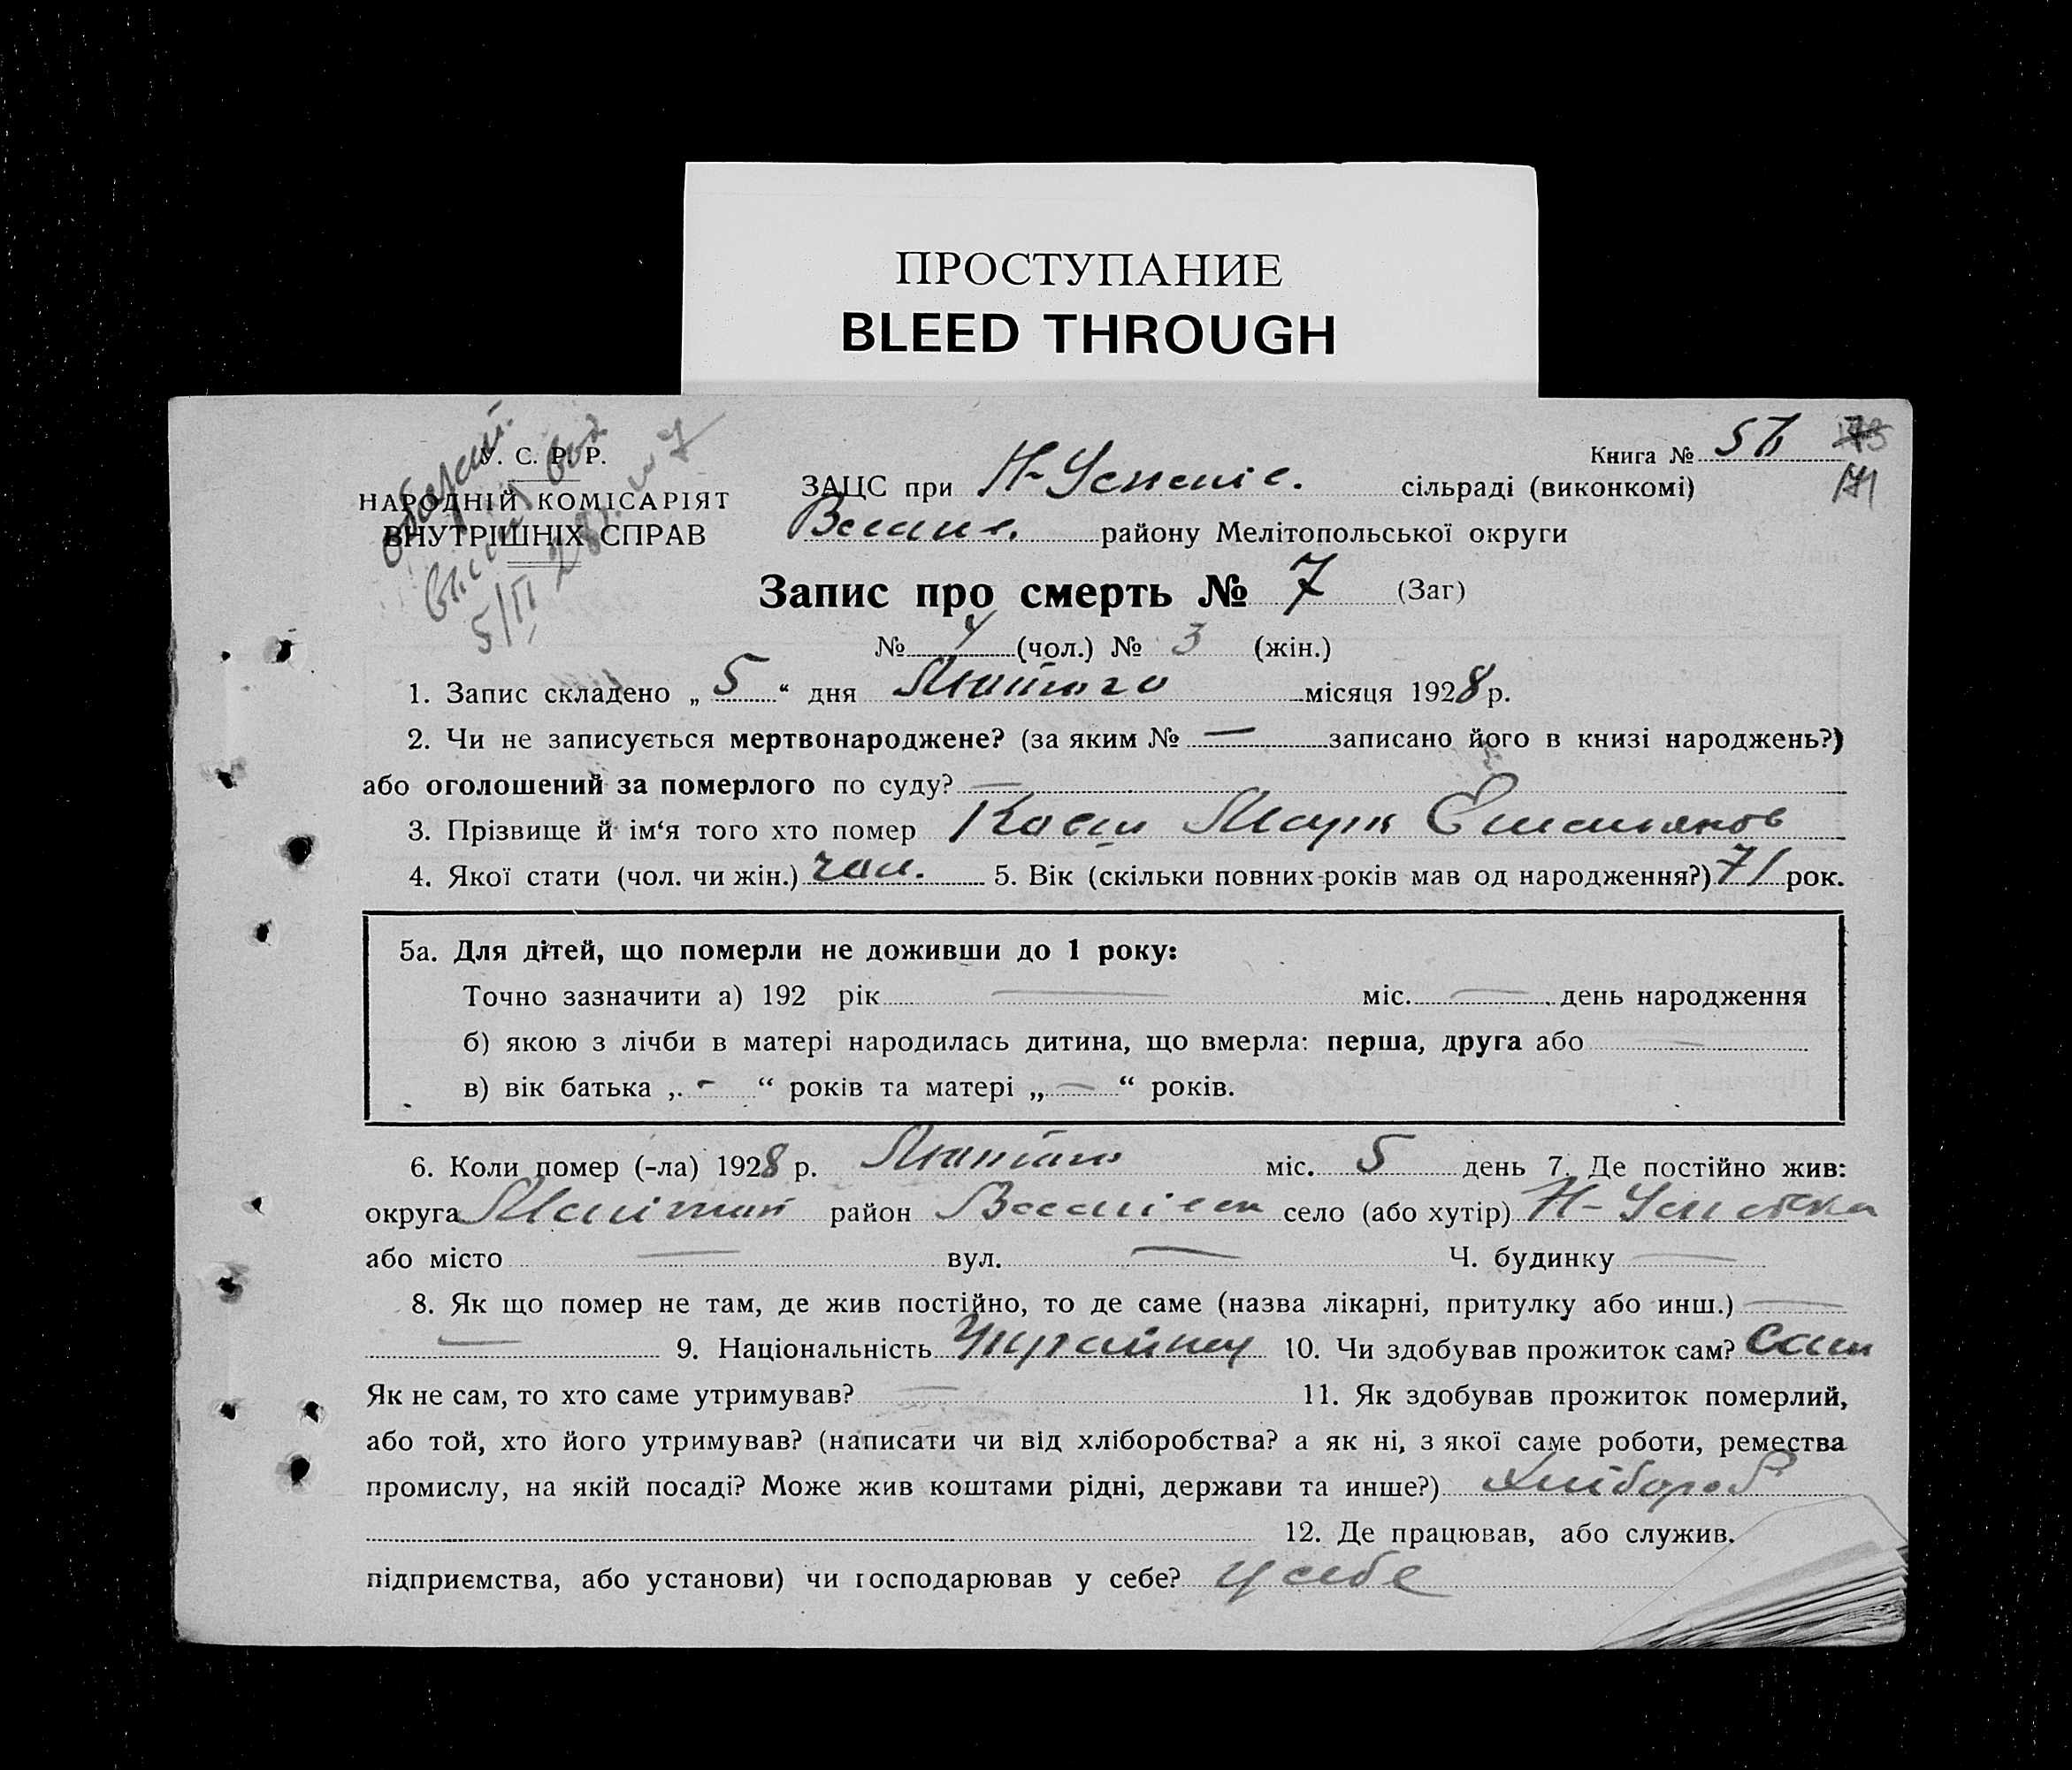 ПРОСТУПАНИЕ
BLEED THROUGH
У. С. Р. Р.
НАРОДНІЙ КОМІСАРІЯТ
ВНУТРІШНІХ СПРАВ
Книга №
ЗАЦС при сільраді (виконкомі)
району Мелітопольської округи
Запис про смерть № 7 (Заг)
№ 4 (чол.) № 3 (жін.)
1. Запис складено „ 5 “ дня Лютого місяця 1928 р.
2. Чи не записується мертвонароджене? (за яким № — записано його в книзі народжень?)
або оголошений за померлого по суду? —
3. Прізвище й ім‘я того хто помер
4. Якої стати (чол. чи жін.) чол. 5. Вік (скільки повних років мав од народження?) 71 рок.
5а. Для дітей, що померли не доживши до 1 року:
Точно зазначити а) 192 рік — міс. — день народження
б) якою з лічби в матері народилась дитина, що вмерла: перша, друга або —
в) вік батька „ - “ років та матері „ — “ років.
6. Коли помер (-ла) 1928 р. Лютого міс. 5 день 7. Де постійно жив:
округа район село (або хутір)
або місто — вул. — Ч. будинку —
8. Як що помер не там, де жив постійно, то де саме (назва лікарні, притулку або инш.) —
— 9. Національність 10. Чи здобував прожиток сам? Сам
Як не сам, то хто саме утримував? — 11. Як здобував прожиток померлий,
або той, хто його утримував? (написати чи від хліборобства? а як ні, з якої саме роботи, ремества
промислу, на якій посаді? Може жив коштами рідні, держави та инше?) Хлібороб
12. Де працював, або служив.
підприємства, або установи) чи господарював у себе? у себе